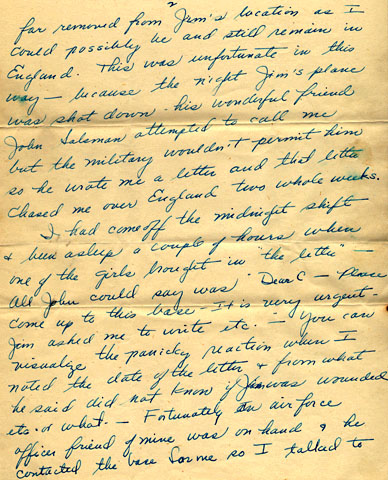 far removed from Jim's location as I
could possibly be and still remain in
England. This was unfortunate in this
way — because the night Jim's plane
was shot down - his wonderful friend
John Salsman attempted to call me
but the military wouldn't permit him
so he wrote me a letter and that letter
chased me over England two whole weeks.
I had come off the midnight shift
& been asleep a couple of hours when
one of the girls brought in "the letter" —
All John could say was "Dear C — Please
come up to this base - It is very urgent -
Jim asked me to write etc." — You can
visualize the panicky reaction when I
noted the date of the letter & from what
he said did not know if Jim was wounded
etc. or what. — Fortunately an air force
officer friend of mine was on hand & he
contacted the base for me so I talked to